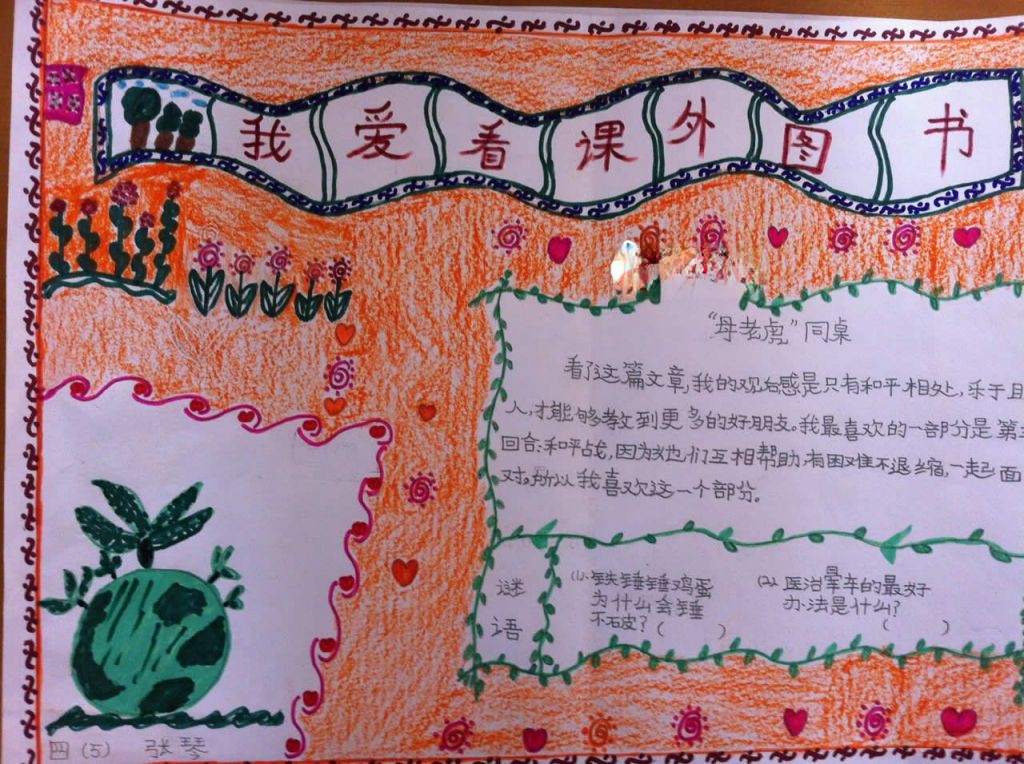 我爱看课外图书
“母老虎”同桌
看了这篇文章,我的观后感是只有和平相处,乐于且
人,才能够教到更多的好朋友。我最喜欢的一部分是第
回合:和平战,因为她们互相帮助有困难不退缩,一起面
对。所以我喜欢这一个部分。
谜
语
(1)铁锤锤鸡蛋
为什么会锤
不破?( )
(2)医治晕车的最好
办法是什么?
( )
四(5) 张琴